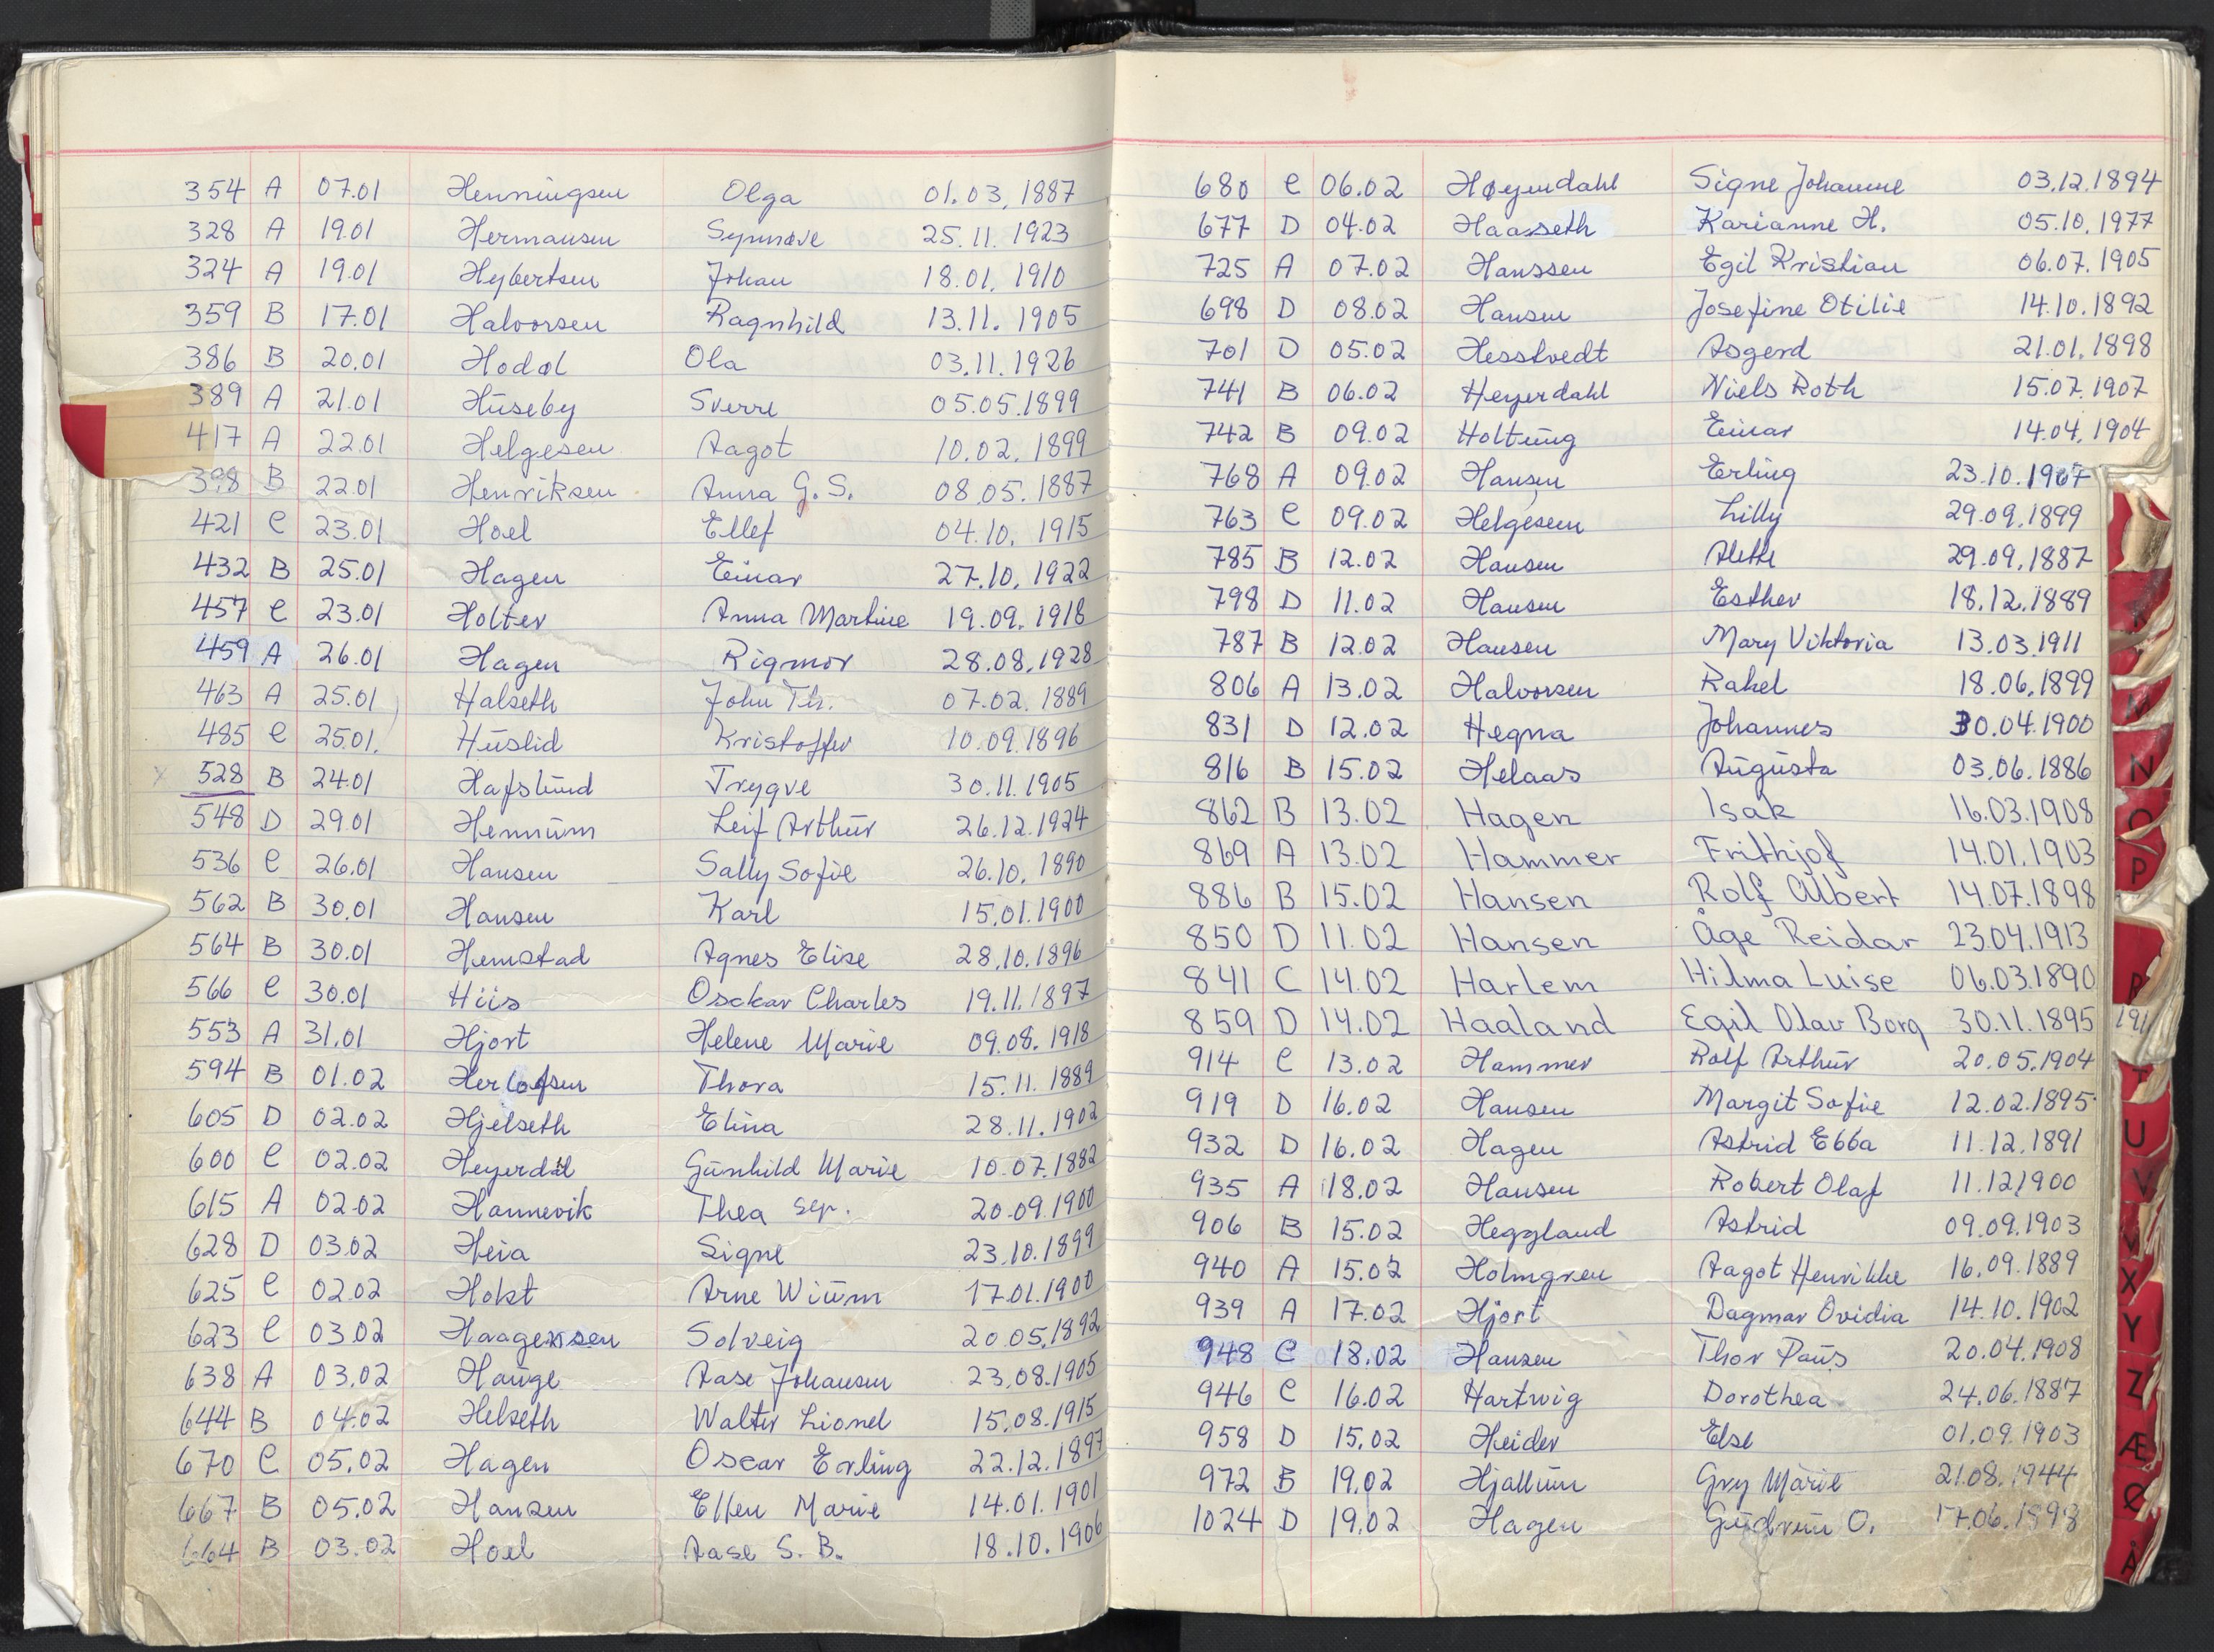 354 A 07.01 Henningsen Olga 01.03.1887
328 A 19.01 Hermansen Synnøve 25.11.1923
324 A 19.01 Hybertsen Johan 18.01.1910
359 B 17.01 Halvorsen Ragnhild 13.11.1905
386 B 20.01 Hodøl Ola 03.11.1926
389 A 21.01 Huseby Sverre 05.05.1899
417 A 22.01 Helgesen Aagot 10.02.1899
398 B 22.01 Henriksen Anna G.S. 08.05.1887
421 C 23.01 Hoel Ellef 04.10.1915
432 B 25.01 Hagen Einar 27.10.1922
457 C 23.01 Holter Anna Martine 19.09.1918
459 A 26.01 Hagen Rigmor 28.08.1928
463 A 25.01 Halseth John Th. 07.02.1889
485 C 25.01. Huslid Kristoffer 10.09.1896
528 B 24.01 Hafslund Trygve 30.11.1905
548 D 29.01 Hennum Leif Arthur 26.12.1924
536 C 26.01 Hansen Sally Sofie 26.10.1890
562 B 30.01 Hansen Karl 15.01.1900
564 B 30.01 Hemstad Agnes Elise 28.10.1896
566 C 30.01 Hiis Osckar Charles 19.11.1897
553 A 31.01 Hjort Helene Marie 09.08.1918
594 B 01.02 Herlofsen Thora 15.11.1889
605 D 02.02 Hjelseth Elina 28.11.1902
600 C 02.02 Heyerdal Gunhild Marie 10.07.1882
615 A 02.02 Hannevik Thea sep. 20.09.1900
628 D 03.02 Heia Signe 23.10.1899
625 C 02.02 Holst Arne Wium 17.01.1900
623 C 03.02 Haagensen Solveig 20.05.1892
638 A 03.02 Hauge Aase Johansen 23.08.1905
644 B 04.02 Helseth Walter Lionel 15.08.1915
670 C 05.02 Hagen Oscar Erling 22.12.1897
667 B 05.02 Hansen Ellen Marie 14.01.1901
664 B 03.02 Hoel Aase S. B. 18.10.1906
680 C 06.02 Høyendahl Signe Johanne 03.12.1894
677 D 04.02 Haasseth Karianne H. 05.10.1977
725 A 07.02 Hanssen Egil Kristian 06.07.1905
698 D 08.02 Hansen Josefine Otilie 14.10.1892
701 D 05.02 Hesstvedt Asgerd 21.01.1898
741 B 06.02 Heyerdahl Niels Roth 15.07.1907
742 B 09.02 Holtung Einar 14.04.1904
768 A 09.02 Hansen Erling 23.10.1907
763 C 09.02 Helgesen Lilly 29.09.1899
785 B 12.02 Hansen Alette 29.09.1887
798 D 11.02 Hansen Esther 18.12.1889
787 B 12.02 Hansen Mary Viktoria 13.03.1911
806 A 13.02 Halvorsen Rakel 18.06.1899
831 D 12.02 Hegna Johannes 30.04.1900
816 B 15.02 Helaas Augusta 03.06.1886
862 B 13.02 Hagen Isak 16.03.1908
869 A 13.02 Hammer Frithjof 14.01.1903
886 B 15.02 Hansen Rolf Albert 14.07.1898
850 D 11.02 Hansen Åge Reidar 23.04.1913
841 C 14.02 Harlem Hilma Luise 06.03.1890
859 D 14.02 Haaland Egil Olav Borg 30.11.1895
914 C 13.02 Hammer Rolf Arthur 20.05.1904
919 D 16.02 Hansen Margit Sofie 12.02.1895
932 D 16.02 Hagen Astrid Ebba 11.12.1891
935 A 18.02 Hansen Robert Olaf 11.12.1900
906 B 15.02 Heggland Astrid 09.09.1903
940 A 15.02 Holmgren Aagot Henrikke 16.09.1889
939 A 17.02 Hjort Dagmar Ovidia 14.10.1902
948 C 18.02 Hansen Thor Paus 20.04.1908
946 C 16.02 Hartwig Dorothea 24.06.1887
958 D 15.02 Heider Else 01.09.1903
972 B 19.02 Hjallum Gry Marie 21.08.1944
1024 D 19.02 Hagen Gudrun O. 17.06.1898
N
O
P
R
T
U
V
X
Y
Z
Æ
Ø
Å